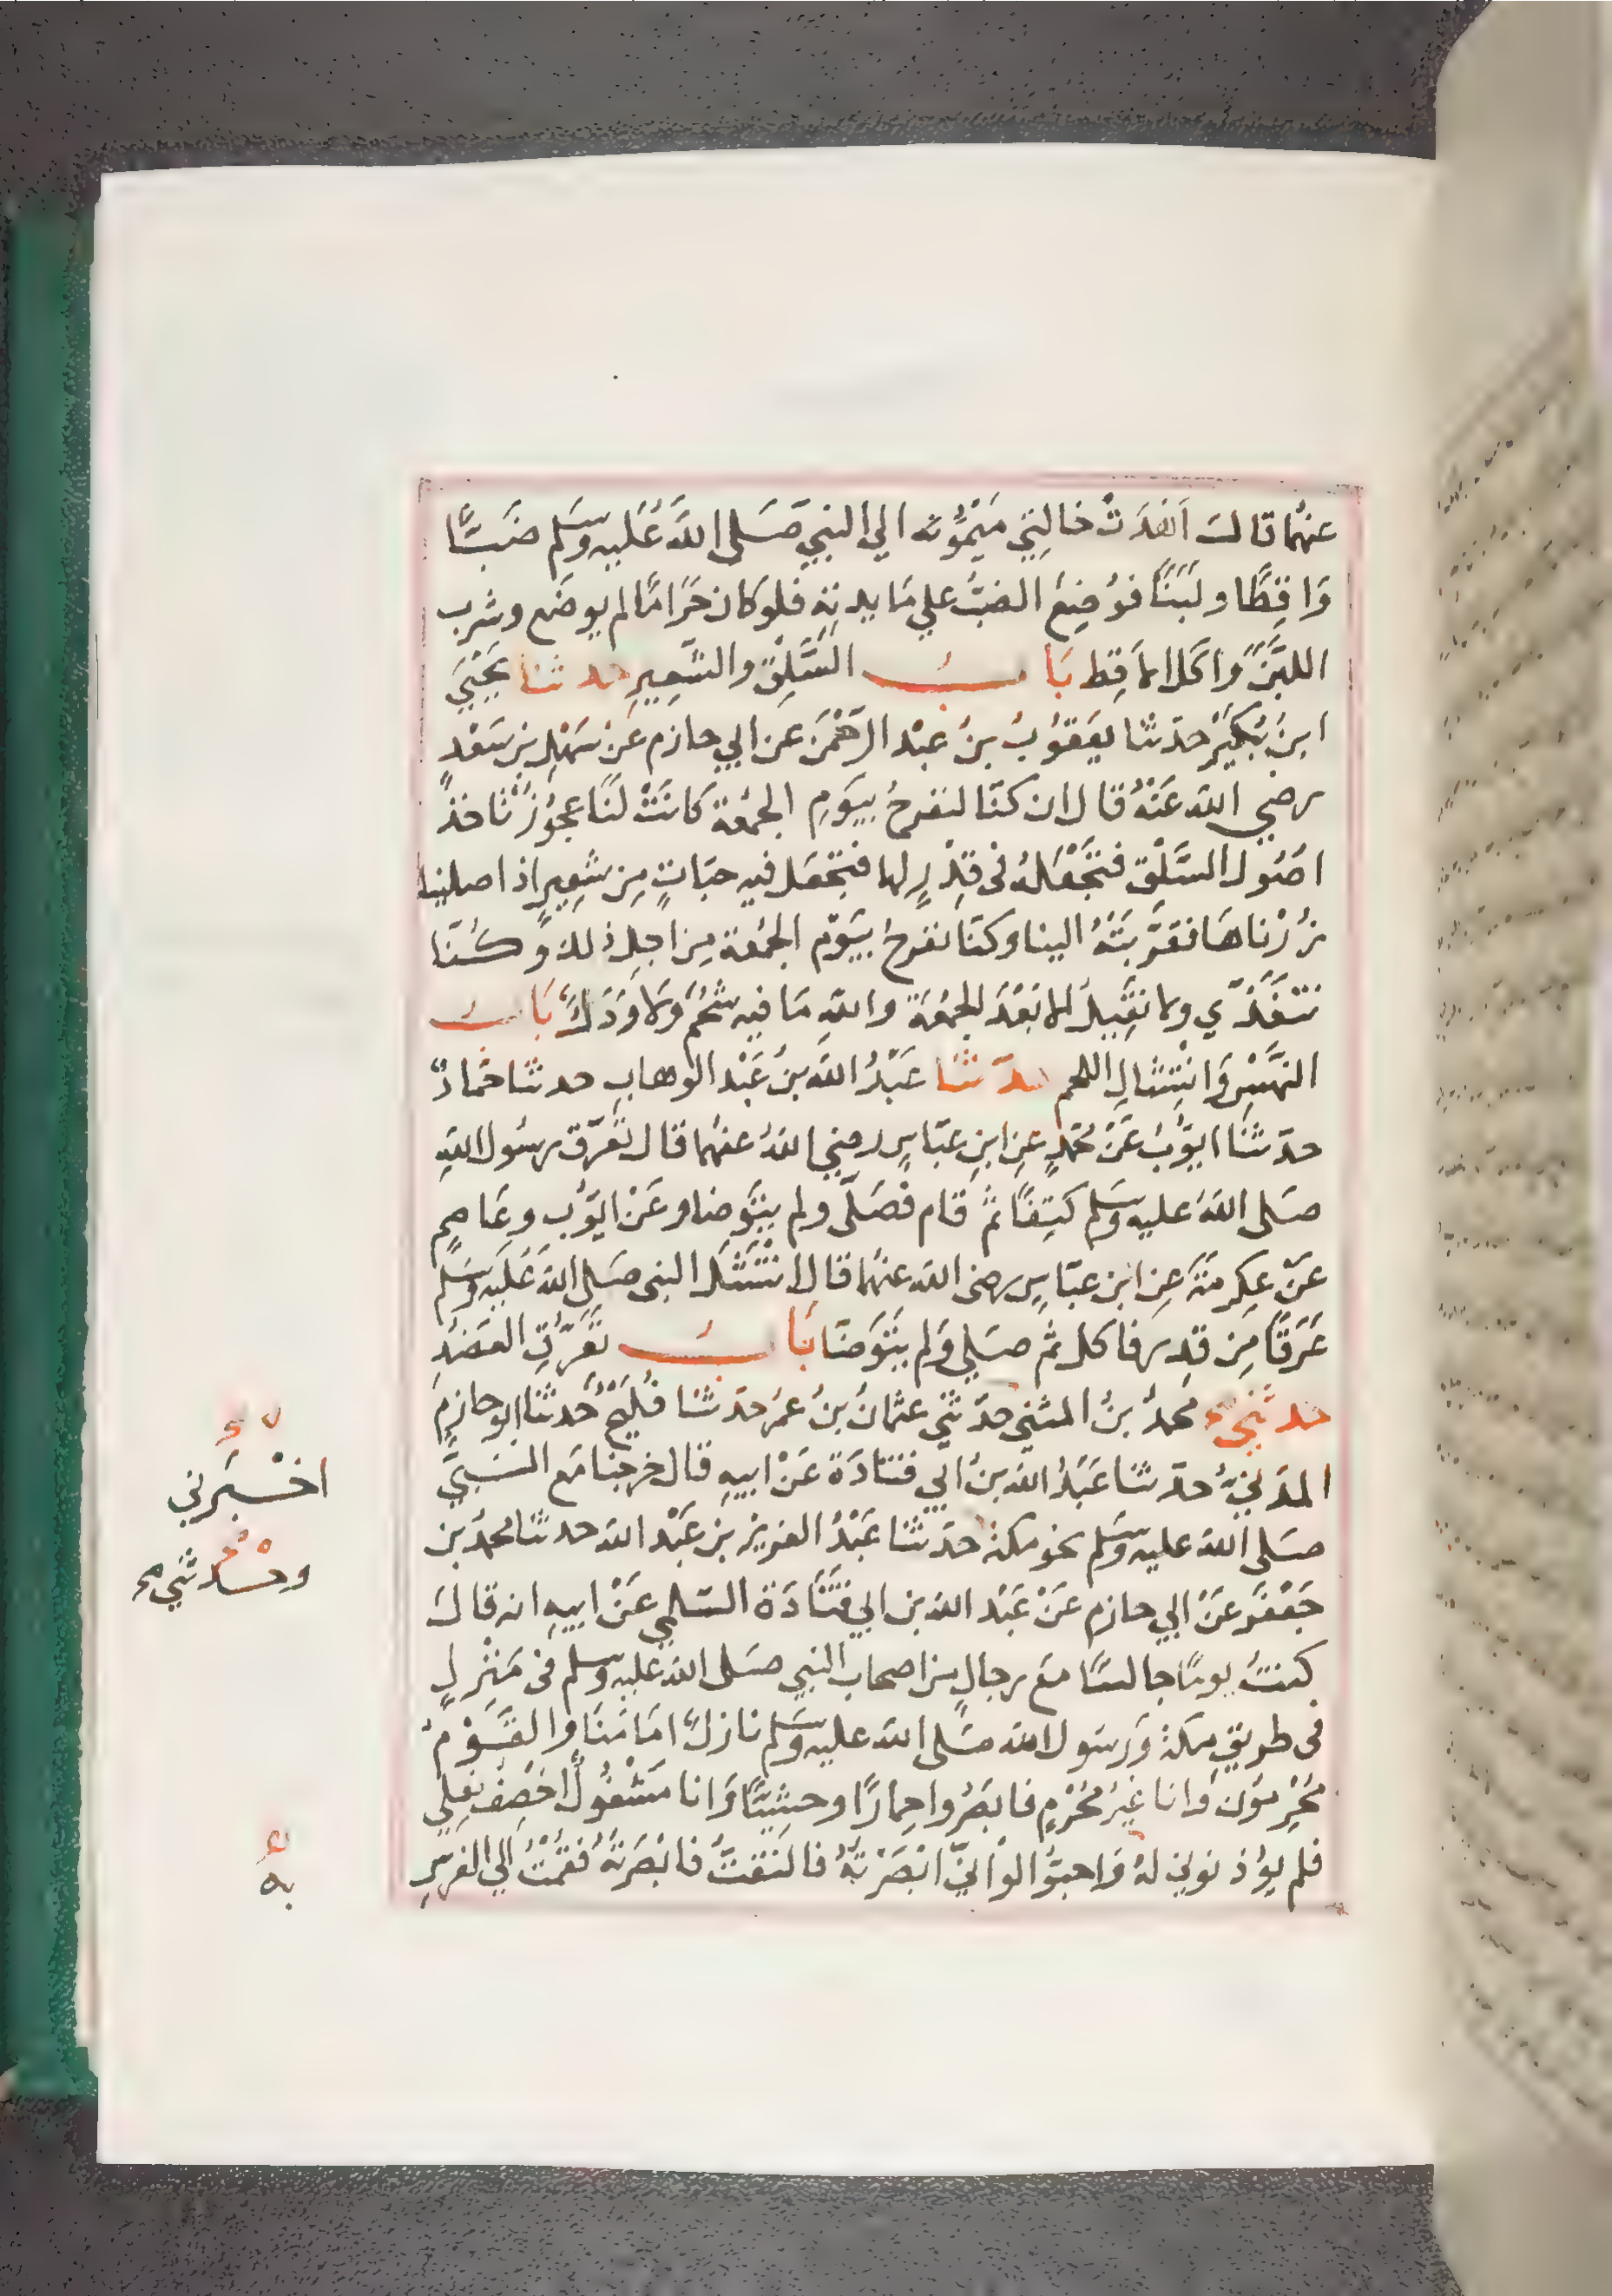 عنهُما قالت اَهْدَتْ خالَتِي مَيْمُونَه الي النبي صَلى اللهُ عَليه وسَلم ضَبًّا
وَاقِطًا ولَبَنًا فوُضِعَ الضبُّ علي مَايدتِه فلو كان حَرَامًا لم يوضَع وشرب
اللبَنَ وَاكلَ الاَقِط بَابُ السِّلْقِ والشَّعِيرِ حدثنا يَحْيَي
ابنُ بُكَيْرٍ حدثنا يَعقوُبُ بنُ عبْد الرَّحْمَن عن ابي حازم عَن سَهْلِ بنِ سَعْدٍ
رضي الله عَنْهُ قال ان كنّا لنفرحُ بيَومِ الجمُعَة كَانَتْ لَنَا عجُوُزٌ تَاخذُ
اصُولَ السِّلْقِ فتجْعَلهُ في قِدْرٍ لها فتجْعَل فيه حبّاتٍ مِن شعِيرٍ اذا صلينا
زُرْناهَا فقرَّبَتْهُ الينا وكنّا نفرحُ بيَوْم الجمُعة مِن اجلِ ذلك وَكُنّا
نتَغَدّي ولا نقِيلُ الا بَعْدَ الجمُعَة واللهِ مَا فيه شَحْمٌ وَلا وَدَكٌ بَابُ
النَّهْسِ وَانْتِشالِ اللحم حدَّثنَا عَبْدُ اللهِ بنُ عَبْد الوهابِ حدثنا حمّادٌ
حدثنَا ايوُّبُ عَنْ محَمّدٍ عنِ ابنِ عبّاسٍ رضي اللهُ عنهُما قال تَعَرّقَ رسُول اللهِ
صَلى اللهُ عليه وسَلم كَتِفًا ثمَّ قام فصَلّى ولم يتَوضا وعَنْ ايوُّب وعَاصِمٍ
عَنْ عِكرمَةَ عنِ ابن عبّاسٍ رضي الله عنهُما قال انْتَشَلَ النبي صَلى الله عَليه وسَلم
عَرَقًا مِن قدِرٍ فاكل ثم صَلي وَلم يَتَوَضّا بَابُ تعَرُّقِ العَضُدِ
حدثَنِي محَمدُ بنُ المثني حدّثني عثمانُ بنُ عُمَر حدثنا فُلَيْحٌ حَدثنا ابو حازمٍ
المدَنيُّ حدّثنا عَبدُ الله بنُ ابي قتادَة عَنْ ابيهِ قال خرجنا مَع النبيِّ
صَلى الله عليه وسَلم نحو مكة حَدثنا عَبْدُ العَزيز بنُ عَبْد الله حدثنا محمدُ بن
جَعْفَر عَنْ ابي حازم عَنْ عَبْد الله بن ابي قَتَادَة السّلَمي عَنْ ابيهِ انه قالَ
كنتُ يومًا جالسًا مَع رجالٍ من اصحاب النبي صَلى الله عليه وسلم في مَنْزِلٍ
في طريقِ مكةَ وَرسُول الله صَلى الله عليه وسَلم نازلٌ امَامنَا والقَوْمُ
مُحْرِموُنَ وَانا غَيْرُ مُحْرمٍ فابصَرُوا حِمارًا وحشِيّا وَانا مَشْغُولٌ اَخصِفُ نعلِي
فلم يوُذنوني لهُ وَاحبُّوا لوْ انيِّ ابْصَرْتهُ فالتَفتُّ فابْصَرتهُ فقمْتُ الي الفرسِ
اخْبَرني
وحدثني
به